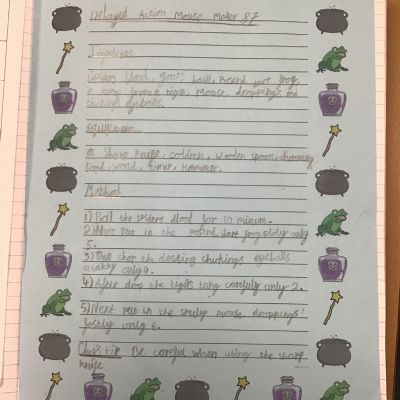 Dplayed Action Mouse Maker 87
Ingredients
Spiders blood, goats, Posend dart frog,
a tung from a tiger, mouse droppings and
eyeballs.
Equipment
A Sharp knife, coldren, wooden spoon, choming
bord, world, timer, Hammer.
Method
1) Boil the spiders blood for 10 minute.
2) Next Put in the Posend dart frog slowly only
5.
3) Then chop the eyeballs
quickly only 9.
4) After drop the tigers tung carefully only 2.
5) Next put in the smuly mouse droppings
fastly only 6.
Chef's tip Be careful when using the sharp
knife